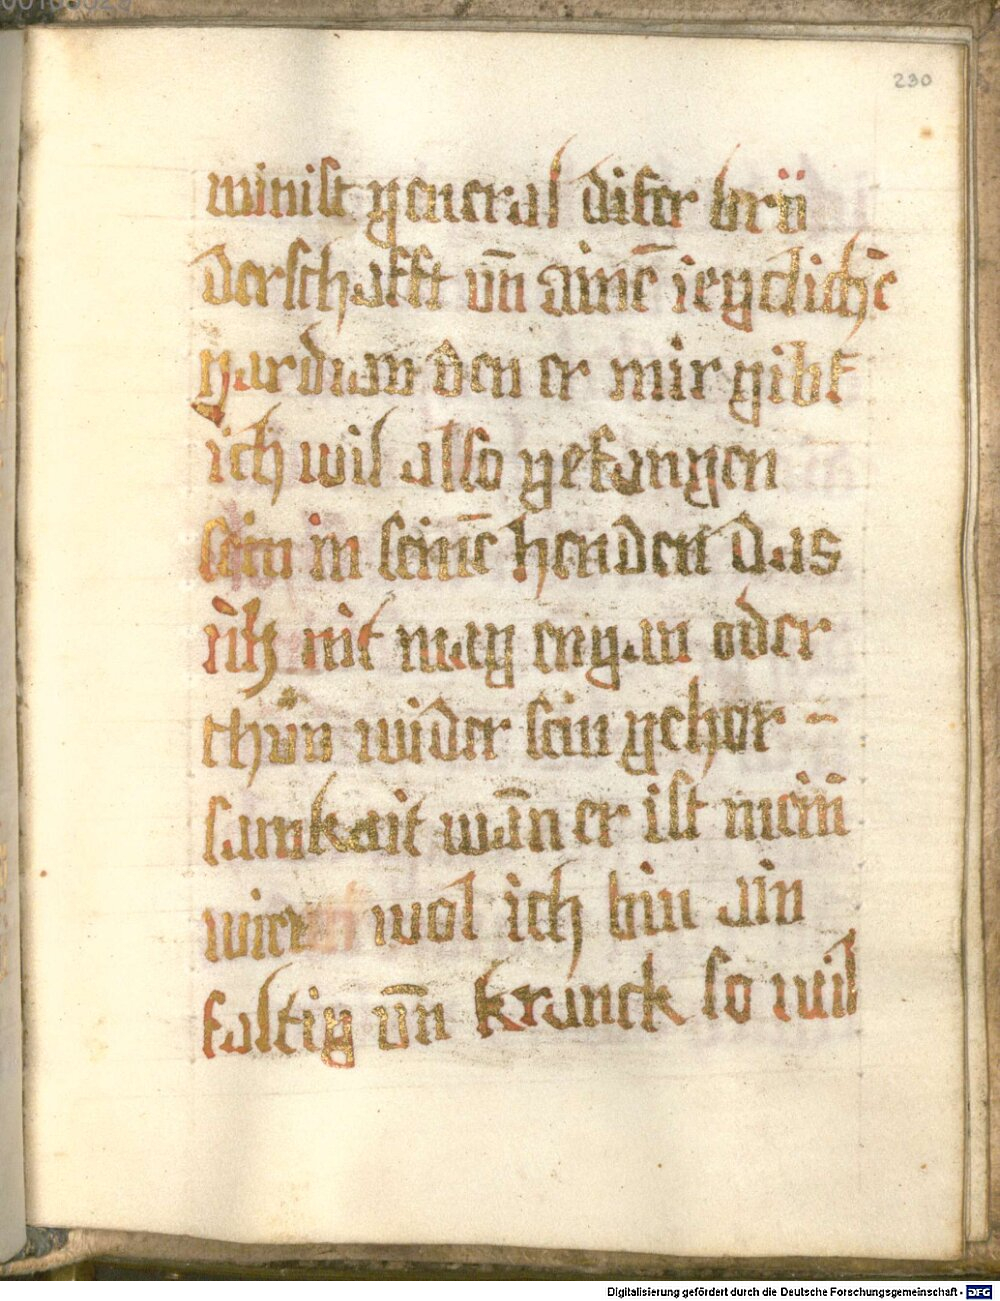 230
minist general diser brü
derschafft vn̄ aine͂ ieyclich͂e
gardian den er mir gibt
ich wil also gefangen
sein in seine͂ henden das
ich nit mag engan oder
thůn wider sein gehor ~
samkait wan̄ er ist mein̄
wier wol ich bin ain
faltig vn̄ kranck so wil
Digitalisierung gefördert durch die Deutsche Forschungsgemeinschaft - DFG